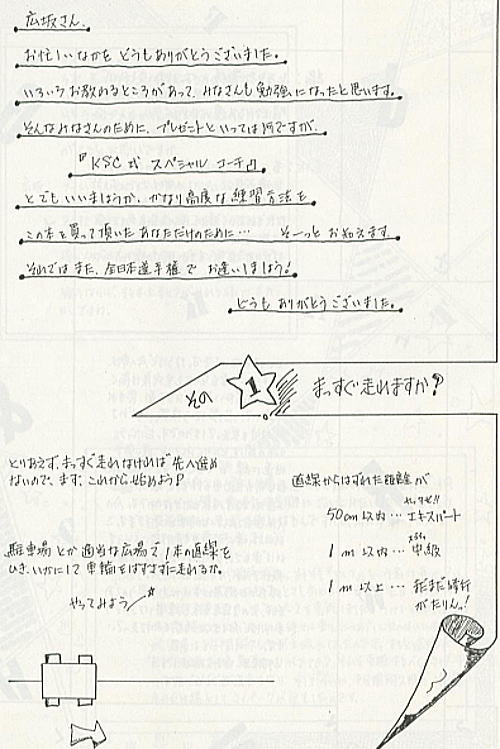 広坂さん.
お忙しいなかを どうもありがとうございました。
いろいろお教わるところがあって、みなさんも勉強になったと思います。
そんなみなさんのために、プレゼントといっては何ですが、
『KSC式 スペシャル コーチ』
とでもいいましょうか、かなり高度な練習方法を
この本を買って頂いたあなただけのために… そーっと お教えします。
それではまた、全日本選手権で お逢いしましょう!
どうも ありがとうございました。
その 1 まっすぐ走れますか?
とりあえず、まっすぐ走れなければ 先へ進め
ないので、まず、これから始めよう!
駐車場とか適当な広場で 1本の直線を
ひき、いかにして 車輪をはずさず走れるか。
やってみよう
直線からはずれた距離が
50cm以内… エキスパート
1m以内… 中級
1m以上… まだ修行
がたりん!